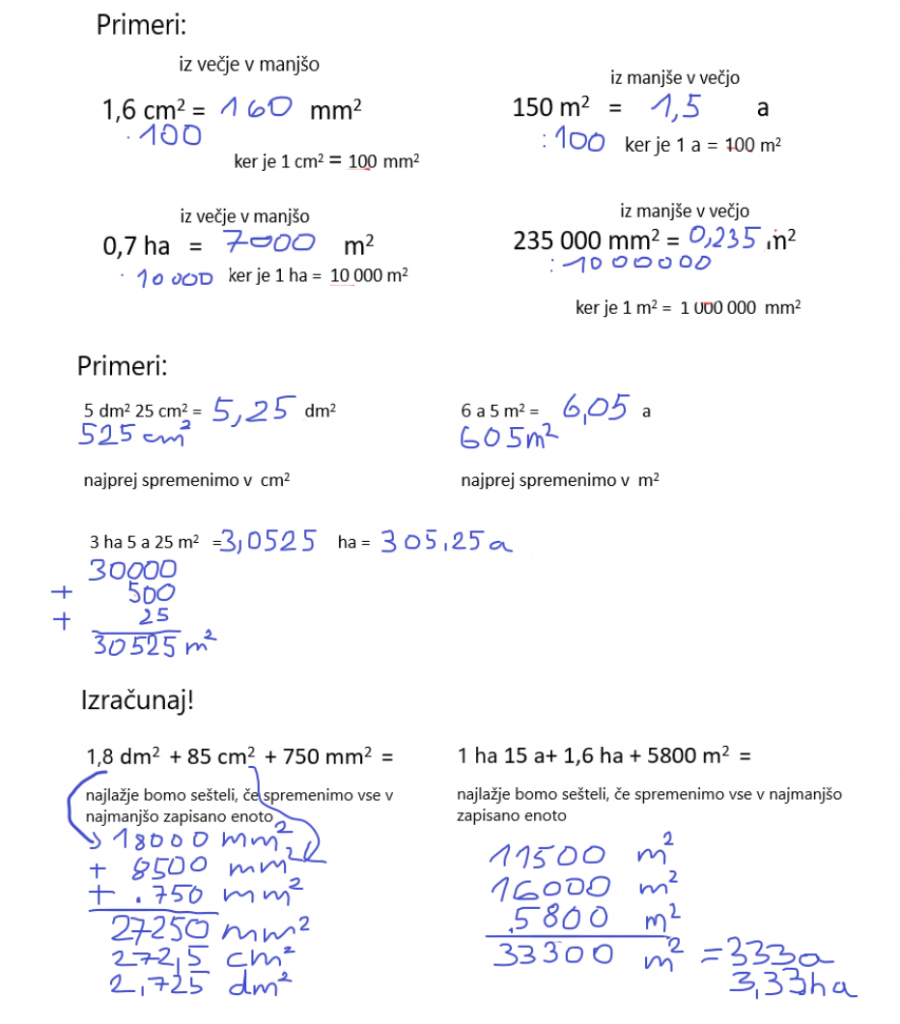 Primeri:
iz večje v manjšo
1,6 cm² = 160 mm²
· 100
ker je 1 cm² = 100 mm²
iz manjše v večjo
150 m² = 1,5 a
: 100 ker je 1 a = 100 m²
iz večje v manjšo
0,7 ha = 7000 m²
· 10 000 ker je 1 ha = 10 000 m²
iz manjše v večjo
235 000 mm² = 0,235 m²
: 1000000
ker je 1 m² = 1 000 000 mm²
Primeri:
5 dm² 25 cm² = 5,25 dm²
525 cm²
najprej spremenimo v cm²
6 a 5 m² = 6,05 a
605 m²
najprej spremenimo v m²
3 ha 5 a 25 m² = 3,0525 ha = 305,25 a
30000
+ 500
+ 25
30525 m²
Izračunaj!
1,8 dm² + 85 cm² + 750 mm² =
najlažje bomo sešteli, če spremenimo vse v
najmanjšo zapisano enoto
18000 mm²
+ 8500 mm²
+ . 750 mm²
27250 mm²
272,5 cm²
2,725 dm²
1 ha 15 a+ 1,6 ha + 5800 m² =
najlažje bomo sešteli, če spremenimo vse v najmanjšo
zapisano enoto
11500 m²
16000 m²
.5800 m²
33300 m² = 333a
3,33ha